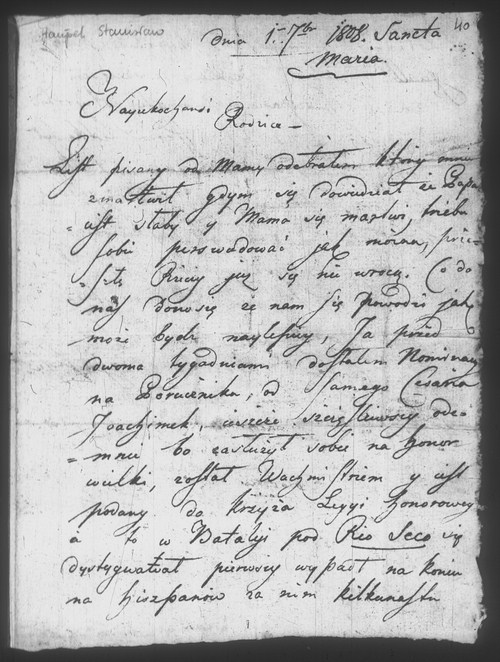 Haupel Stanisław
40
Dnia 1. 7br 1808. Sancta
Maria.
Nayukochansi Rodzice —
List pisany od Mamy odebrałem który mnie
zmartwił gdym się dowiedział że Papa
= iest słaby y Mama się martwi, trzeba
sobie perswadować jak można, przesz=
= szłe Rzeczy już się nie wrocą. Co do
nas donoszę że nam się powodzi jak
może bydź naylepiey, Ja przed
dwoma tygodniami dostałem Nominacyą
na Porucznika, od Samego Cesarza
Joachimek, ieszcze szczęśliwszy ode=
= mnie bo zasłużył sobie na honor
wielki, został Wachmistrzem y iest
podany do krzyża Legyi honorowey
a to w Batalyi pod Rio Seco się
dystyngwował pierwszy wypadł na koniu
na hiszpanów za nim kilkunastu